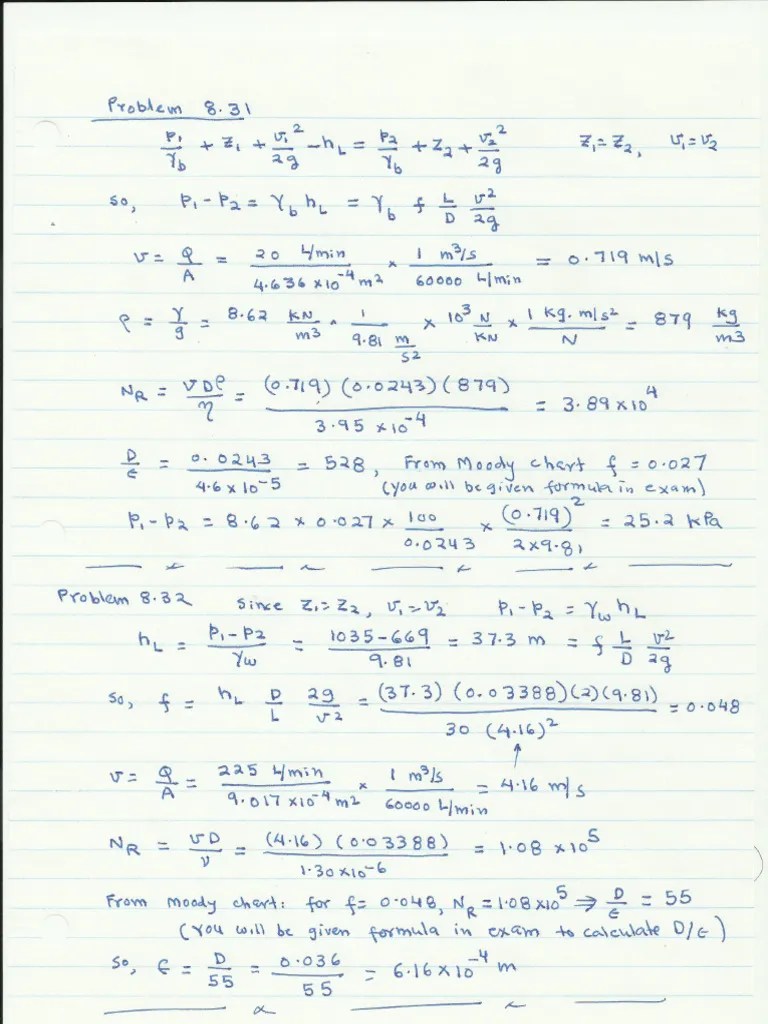 Problem 8.31
p₁/γb + z₁ + v₁²/2g - hL = p₂/γb + z₂ + v₂²/2g   z₁ = z₂, v₁ = v₂
so, p₁ - p₂ = γb hL = γb f L/D v²/2g
v = Q/A = 20 L/min / 4.636 × 10⁻⁴ m² × 1 m³/s / 60000 L/min = 0.719 m/s
ρ = γ/g = 8.62 KN/m3 × 1 / 9.81 m/s2 × 10³ N/KN × 1 kg. m/s² / N = 879 kg/m3
NR = vDρ/η = (0.719) (0.0243) (879) / 3.95 × 10⁻⁴ = 3.89 × 10⁴
D/ε = 0.0243 / 4.6 × 10⁻⁵ = 528, From Moody chart f = 0.027
(you will be given formula in exam)
p₁ - p₂ = 8.62 × 0.027 × 100/0.0243 × (0.719)² / 2×9.81 = 25.2 kPa
Problem 8.32   Since z₁ = z₂, v₁ = v₂   p₁ - p₂ = γw hL
hL = p₁ - p₂ / γw = 1035-669 / 9.81 = 37.3 m = f L/D v²/2g
so, f = hL D/L 2g/v² = (37.3) (0.03388)(2)(9.81) / 30 (4.16)² = 0.048
v = Q/A = 225 L/min / 9.017 × 10⁻⁴ m² × 1 m³/s / 60000 L/min = 4.16 m/s
NR = vD/ν = (4.16) (0.03388) / 1.30 × 10⁻⁶ = 1.08 × 10⁵
From moody chart: for f = 0.048, NR = 1.08 × 10⁵ ⇒ D/ε = 55
(you will be given formula in exam to calculate D/ε)
so, ε = D/55 = 0.036/55 = 6.16 × 10⁻⁴ m